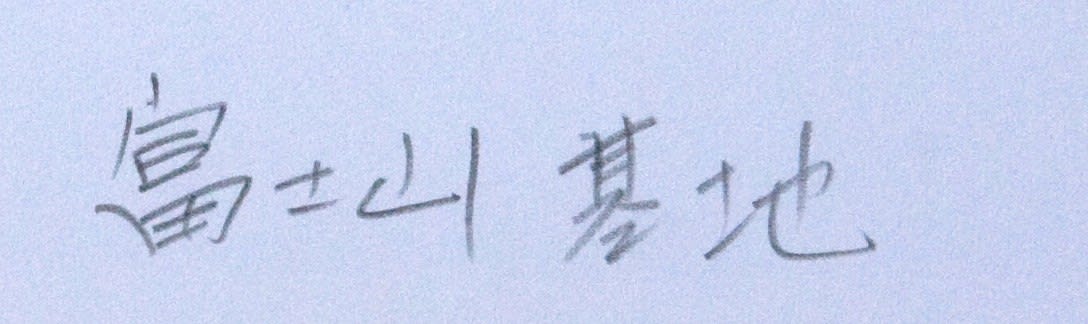 富士山基地